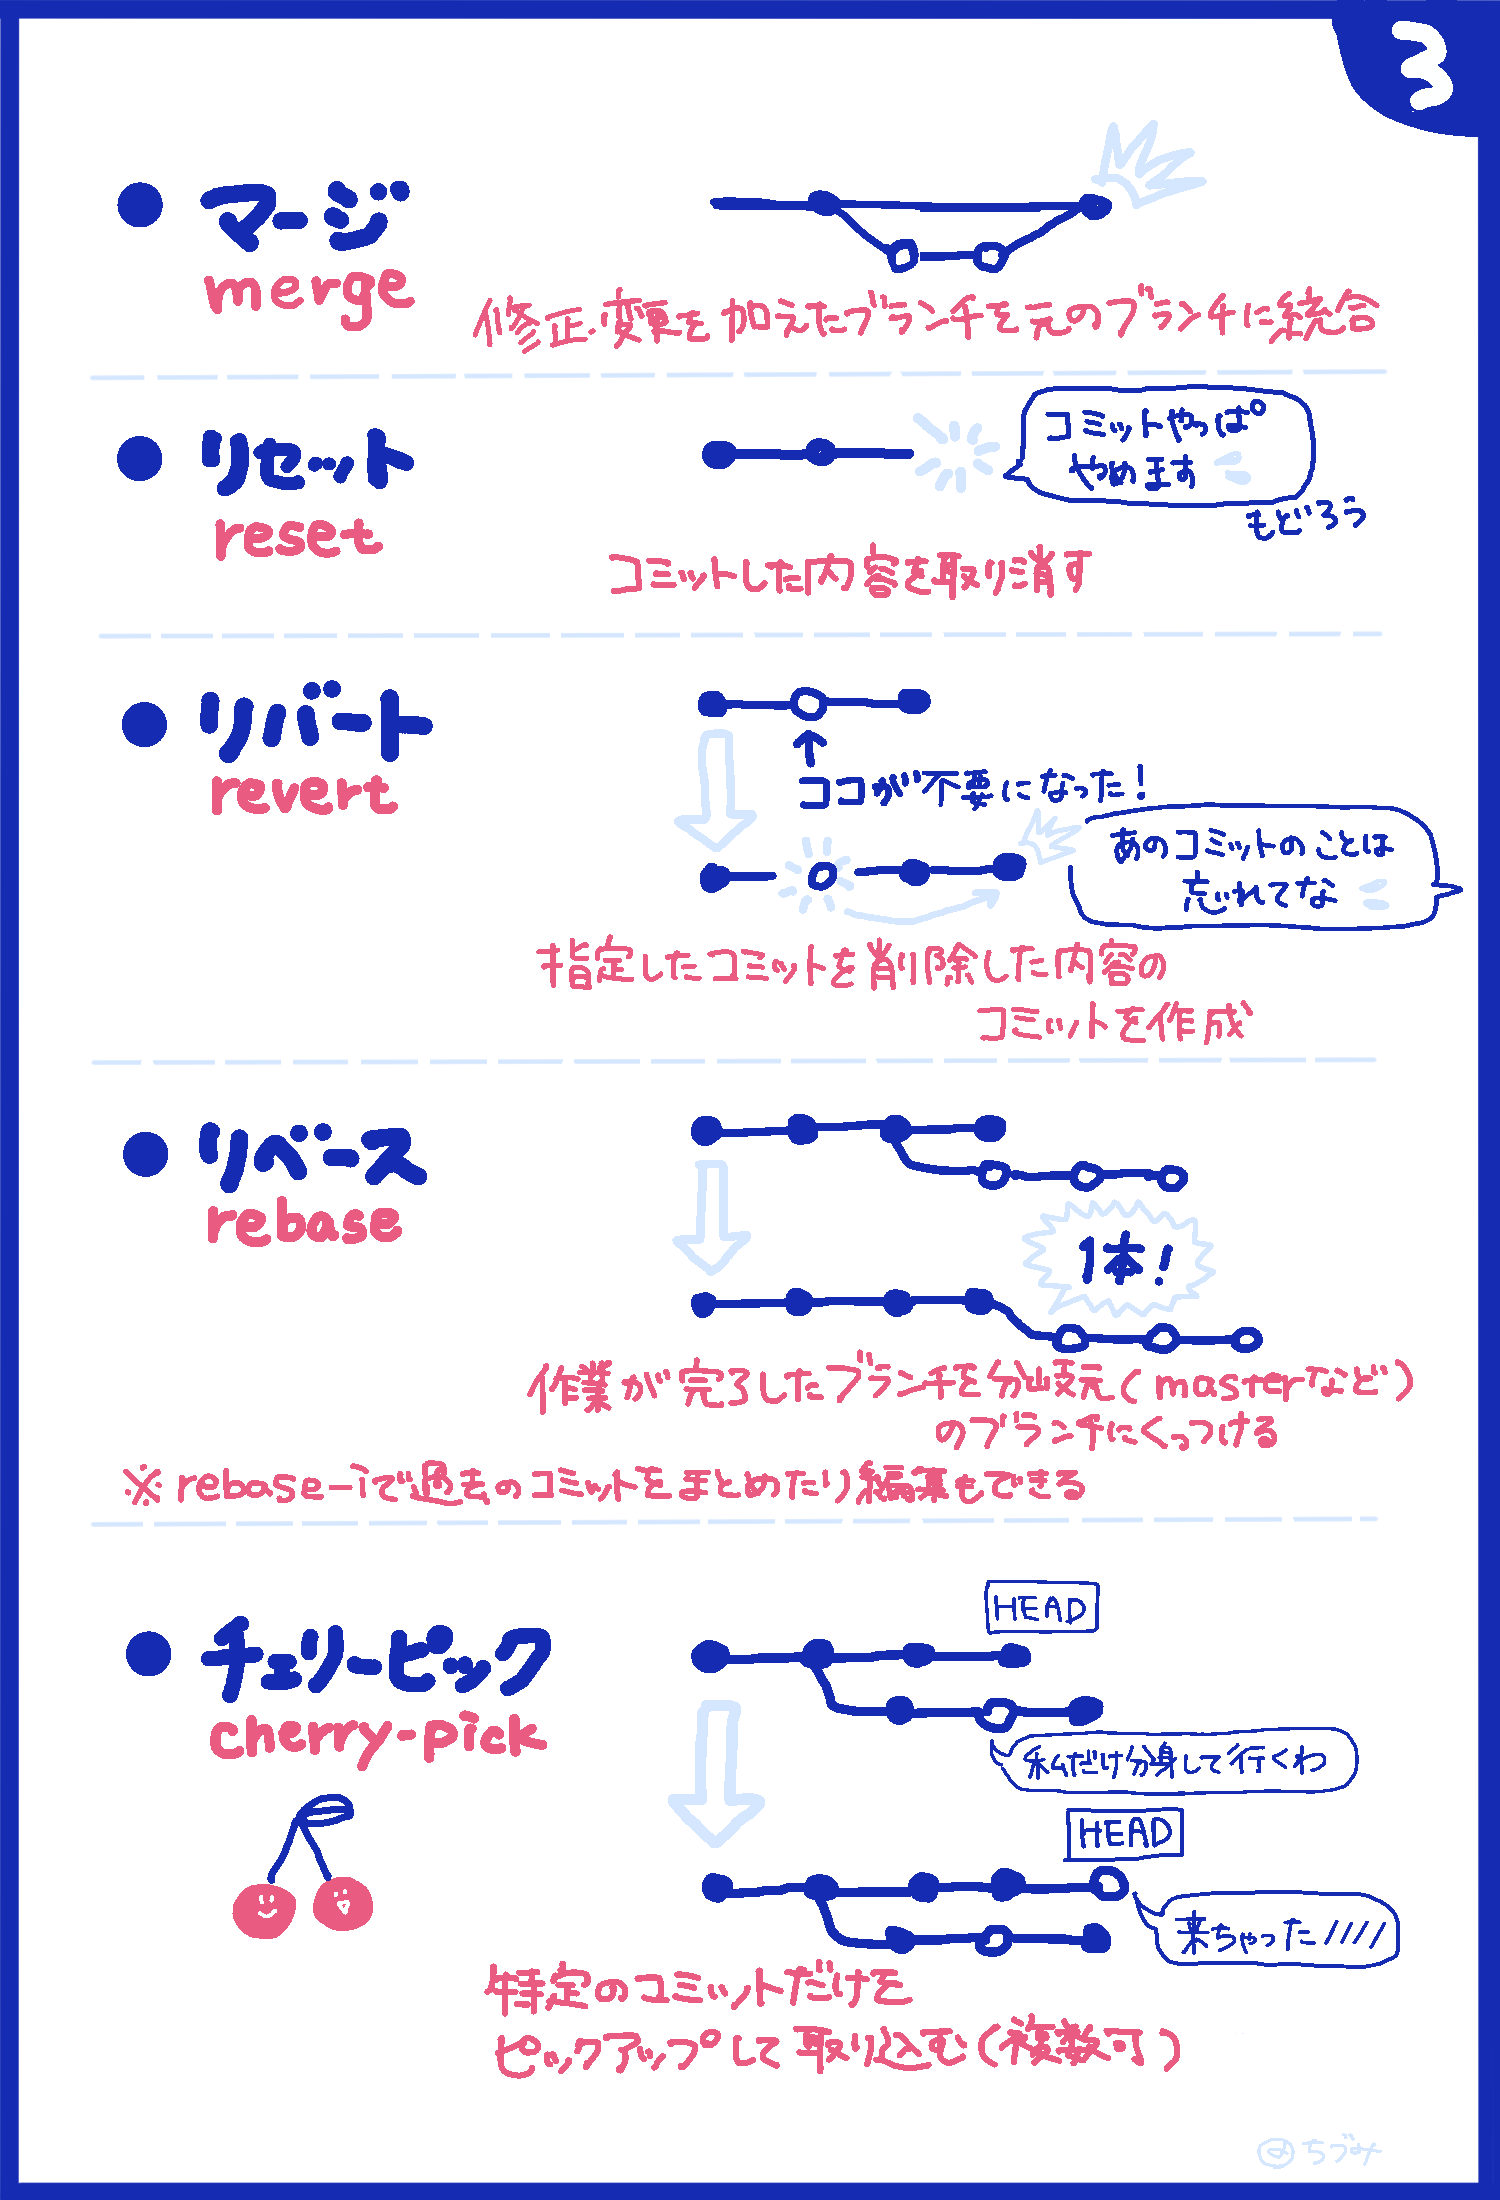 3
マージ
merge
修正・変更を加えたブランチを元のブランチに統合
リセット
reset
コミットやっぱ
やめます
もどろう
コミットした内容を取り消す
リバート
revert
ココが不要になった！
あのコミットのことは
忘れてな
指定したコミットを削除した内容の
コミットを作成
リベース
rebase
1本！
作業が完了したブランチを分岐元(masterなど)
のブランチにくっつける
※rebase-iで過去のコミットをまとめたり編集もできる
チェリーピック
cherry-pick
HEAD
私だけ分身して行くわ
HEAD
来ちゃった////
特定のコミットだけを
ピックアップして取り込む(複数可)
@ちづみ